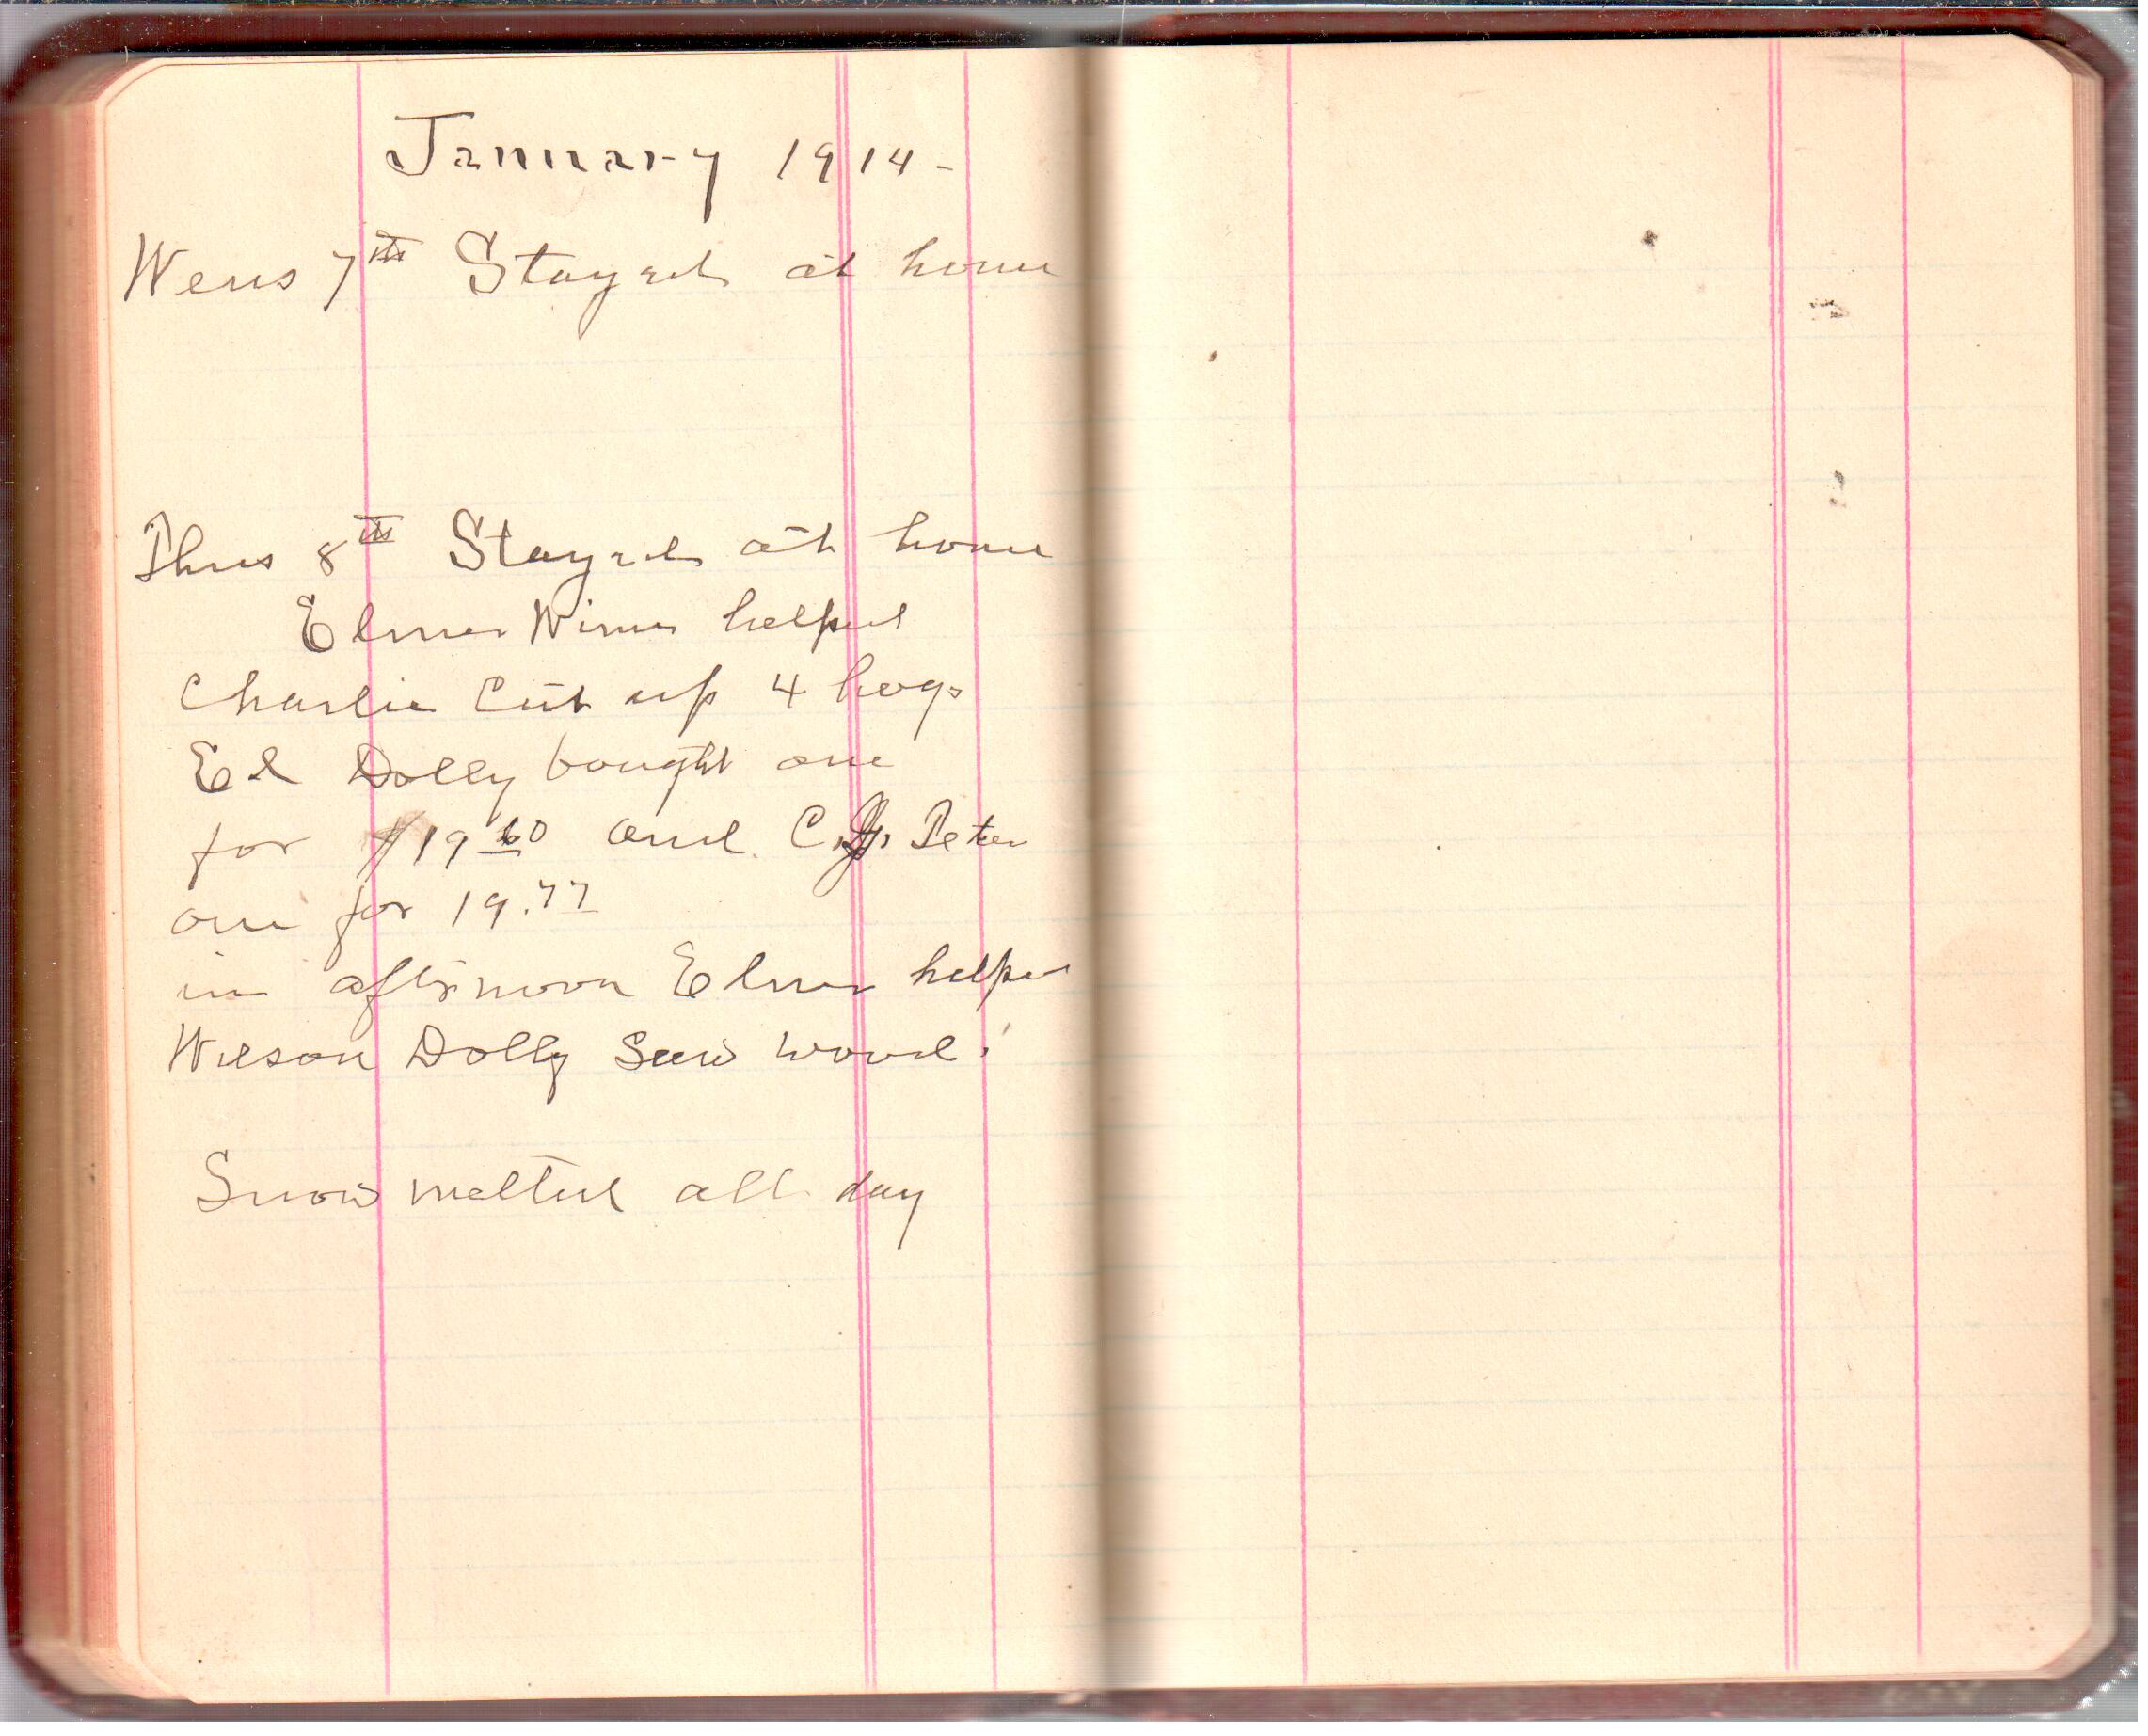 January 1914-
Wens 7th Stayed at home
Thus 8th Stayed at home
Elmer Wimer helped
Charlie Cut up 4 hogs
Ed Dolly bought one
for $19 60 and C. J. Teter
one for 19.77
in afternoon Elmer helped
Wilson Dolly Saw wood.
Snow melted all day